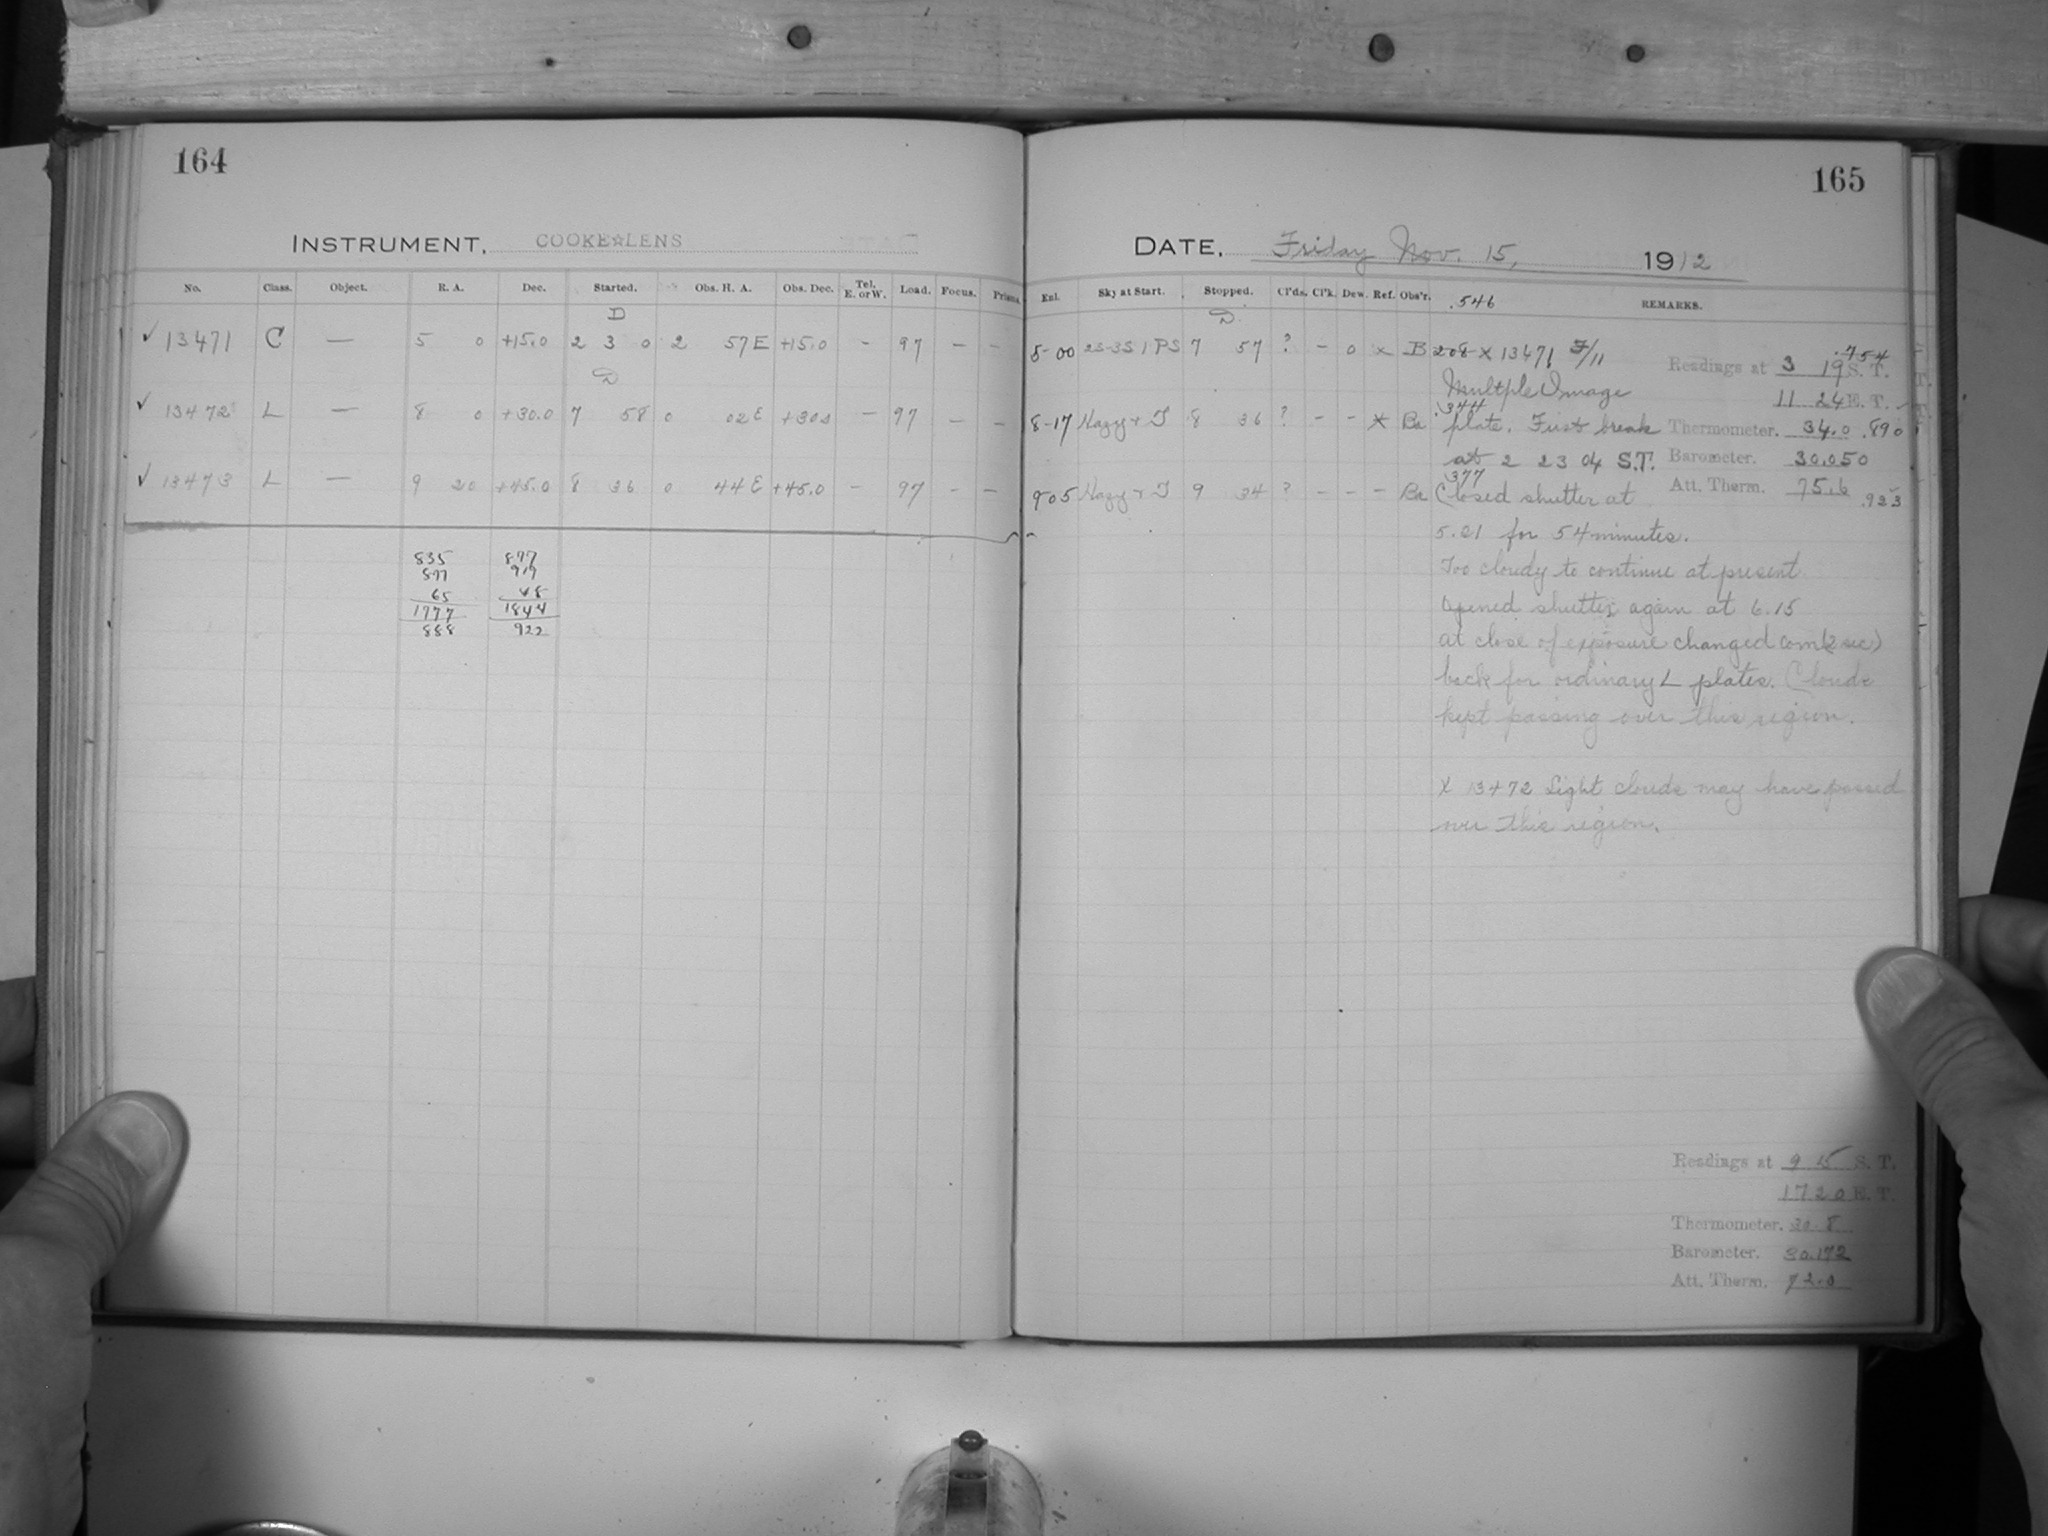 164
INSTRUMENT, COOKE☆LENS
No. Class. Object. R. A. Dec. Started. Obs. H. A. Obs. Dec. Tel. E. or W. Load. Focus. Prisms.
D
✓ 13471 C — 5 0 +15.0 2 30 2 57E +15.0 - 97 - -
D
✓ 13472 L — 8 0 +30.0 7 58 0 02E +30.0 - 97 - -
✓ 13473 L — 9 20 +45.0 8 36 0 44E +45.0 - 97 - -
835 877
877 919
65 48
1777 1844
888 922
165
DATE, Friday Nov. 15, 1912
Exl. Sky at Start. Stopped. Cl'ds. Cl'k. Dew. Ref. Obs'r. .546 REMARKS.
D.
5-00 2S-3S 1 PS 7 57 ? - 0 x B 208 X 13471 F/11
Multple Image
.344
8-17 Hazy + T 8 36 ? - - * Ba plate. First break
at 2 23 04 S.T.
377
9 05 Hazy + T 9 34 ? - - - Ba Closed shutter at
5.21 for 54 minutes.
Too cloudy to continue at present
Opened shutter again at 6.15
at close of exposure changed com (2 sec)
back for ordinary L plates. Clouds
kept passing over this region.
X 13472 Light clouds may have passed
over this region.
.754
Readings at 3 19 S. T.
11 24 E. T.
Thermometer. 34.0 .890
Barometer. 30.050
Att. Therm. 75.6 .923
Readings at 9 15 S. T.
17 20 E. T.
Thermometer. 30.8
Barometer. 30.172
Att. Therm. 72.0